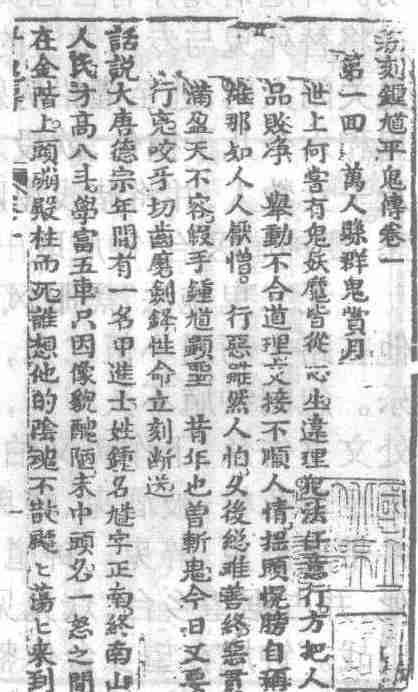 刻鍾馗平鬼傳卷一
第一回 萬人縣群鬼賞月
世上何嘗有鬼妖魔皆從心生違理犯法任意行方把人
品敗净 舉動不合道理交接不順人情搖頭愰膀自稱
雄那如人人厭憎 行惡雖然人怕久後總難善終惡貫
滿盈天不容假手鍾馗顯聖 昔年也曾斬鬼今日又要
行兇咬牙切齒磨劍鋒性命立刻斷送
話説大唐德宗年間有一名甲進士姓鍾名馗字正南終南山
人氏才高八斗學富五車只因像貌醜陋未中頭名一怒之間
在金階上頭碰殿柱而死誰想他的陰魂不散飄々蕩々来到